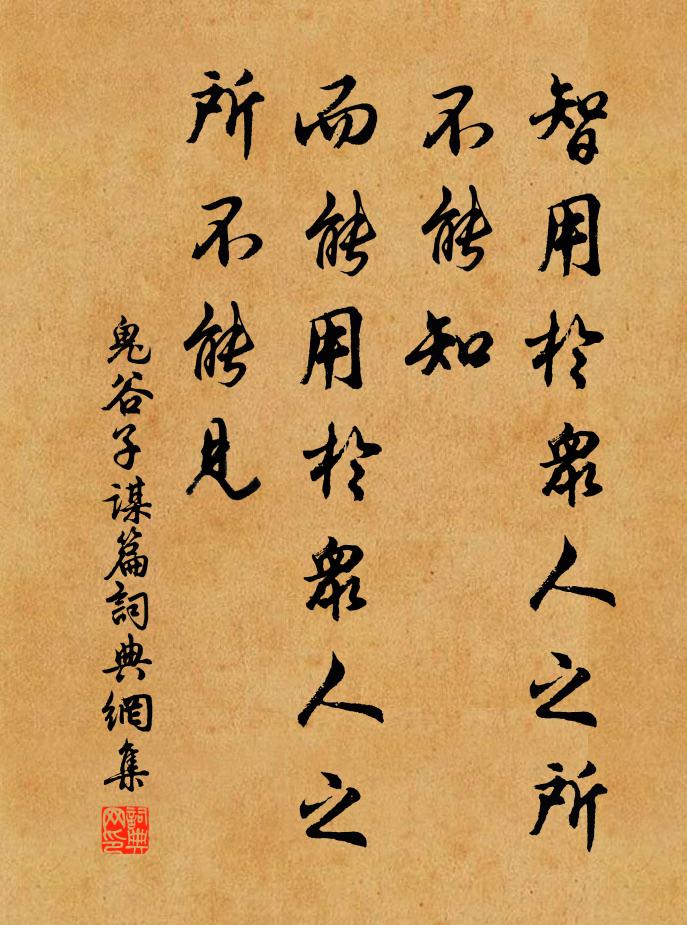 智用於眾人之所
不能知
而能用於眾人之
所不能見
鬼谷子謀篇詞典網集
詞典
网印